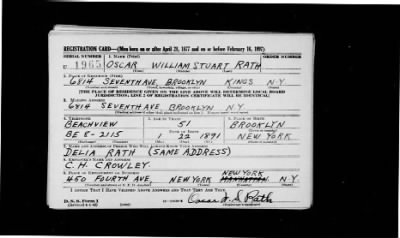 REGISTRATION CARD—(Men born on or after April 28, 1877 and on or before February 16, 1897)
SERIAL NUMBER 1. NAME (Print) ORDER NUMBER
U 1965 OSCAR WILLIAM STUART RATH
(First) (Middle) (Last)
2. PLACE OF RESIDENCE (Print)
6814 SEVENTH AVE. BROOKLYN KINGS N.Y.
(Number and street) (Town, township, village, or city) (County) (State)
[THE PLACE OF RESIDENCE GIVEN ON THE LINE ABOVE WILL DETERMINE LOCAL BOARD
JURISDICTION; LINE 2 OF REGISTRATION CERTIFICATE WILL BE IDENTICAL]
3. MAILING ADDRESS
6814 SEVENTH AVE. BROOKLYN N.Y.
4. TELEPHONE 5. AGE IN YEARS 6. PLACE OF BIRTH
BEACHVIEW 51 BROOKLYN
DATE OF BIRTH
BE 8-2115 1 22 1891 NEW YORK
(Mo.) (Day) (Yr.)
7. NAME AND ADDRESS OF PERSON WHO WILL ALWAYS KNOW YOUR ADDRESS
DELIA RATH (SAME ADDRESS)
8. EMPLOYER'S NAME AND ADDRESS
C. H. CROWLEY
9. PLACE OF EMPLOYMENT OR BUSINESS NEW YORK
450 FOURTH AVE, NEW YORK MANHATTAN N.Y.
I AFFIRM THAT I HAVE VERIFIED ABOVE ANSWERS AND THAT THEY ARE TRUE.
D. S. S. Form 1
Oscar W. S. Rath